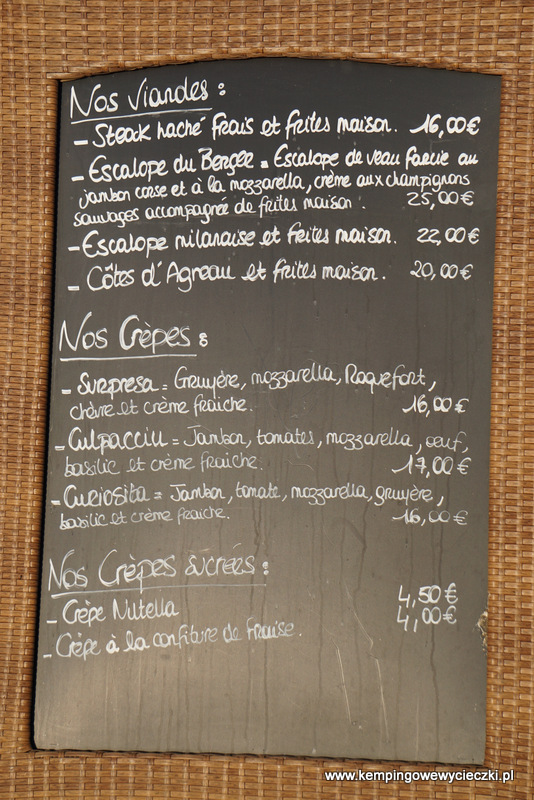 Nos Viandes :
- Steack haché frais et frites maison. 16,00€
- Escalope du Berger = Escalope de veau farcie au
jambon corse et à la mozzarella, crème aux champignons
sauvages accompagnée de frites maison. 25,00€
- Escalope milanaise et frites maison. 22,00€
- Côtes d'Agneau et frites maison. 20,00€
Nos Crèpes :
- Surpresa = Gruyère, mozzarella, Roquefort,
chèvre et crème fraiche. 16,00€
- Culpacciu = Jambon, tomates, mozzarella, oeuf,
basilic et crème fraiche. 17,00€
- Curiosita = Jambon, tomate, mozzarella, gruyère,
basilic et crème fraiche. 16,00€
Nos Crèpes sucrées :
- Crèpe Nutella 4,50€
- Crèpe à la confiture de fraise. 4,00€
www.kempingowewycieczki.pl